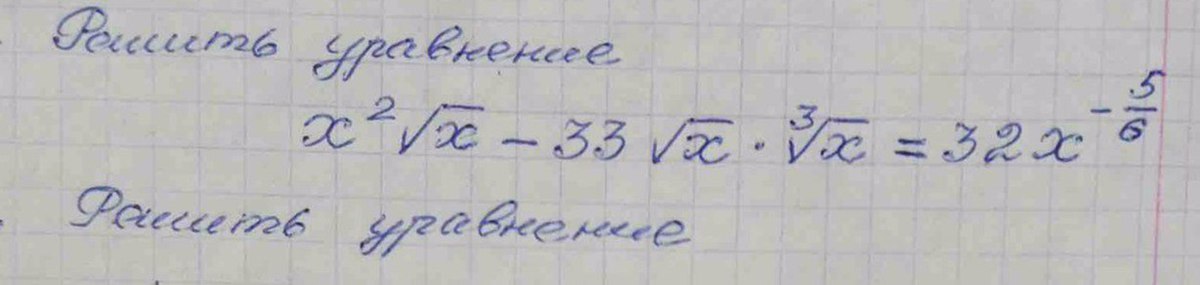 Решить уравнение
x²√x − 33√x · ∛x = 32x^(-5/6)
Решить уравнение